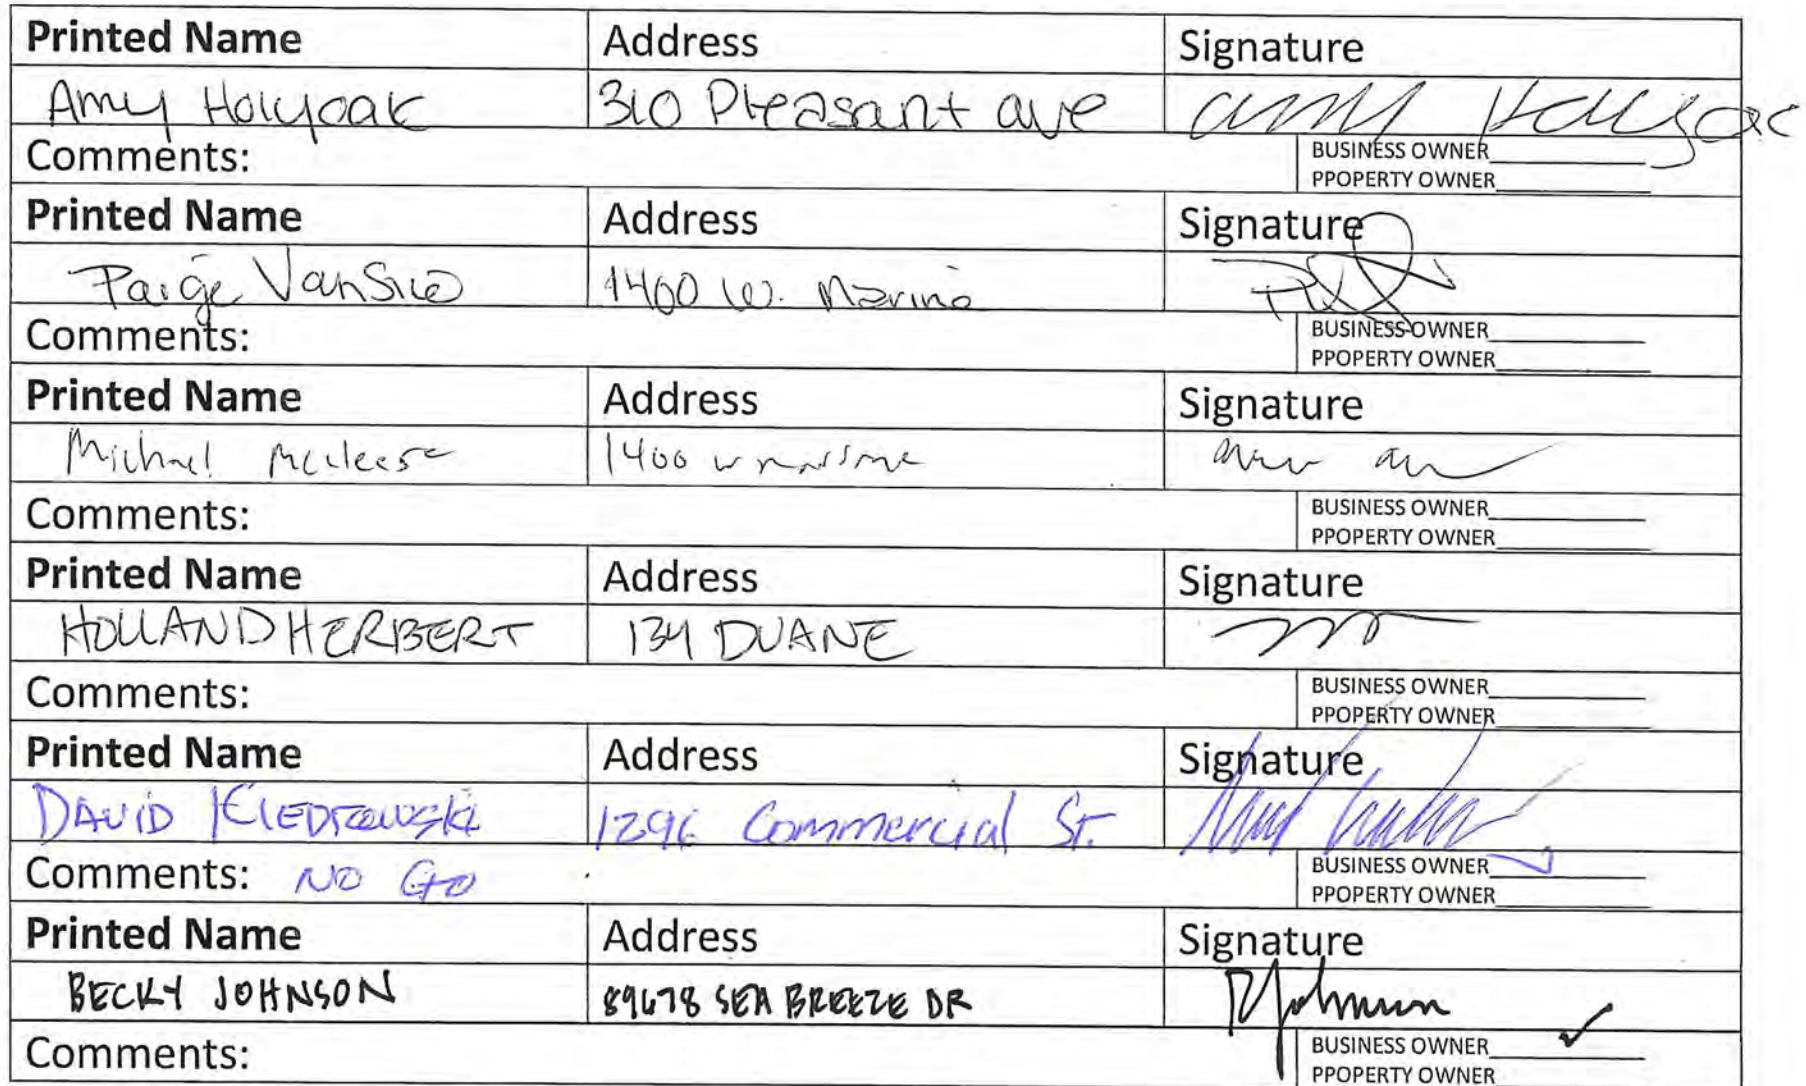 Printed Name Address Signature
Amy Holyoak 310 Pleasant ave Amy Holyoak
Comments: BUSINESS OWNER
PPOPERTY OWNER
Printed Name Address Signature
Paige 1400 W. Marine
Comments: BUSINESS OWNER
PPOPERTY OWNER
Printed Name Address Signature
Michael 1400 W marine
Comments: BUSINESS OWNER
PPOPERTY OWNER
Printed Name Address Signature
HOLLAND HERBERT 134 DUANE
Comments: BUSINESS OWNER
PPOPERTY OWNER
Printed Name Address Signature
DAVID 1296 Commercial St.
Comments: NO GO BUSINESS OWNER ✓
PPOPERTY OWNER
Printed Name Address Signature
BECKY JOHNSON 89678 SEA BREEZE DR RJohnson
Comments: BUSINESS OWNER ✓
PPOPERTY OWNER